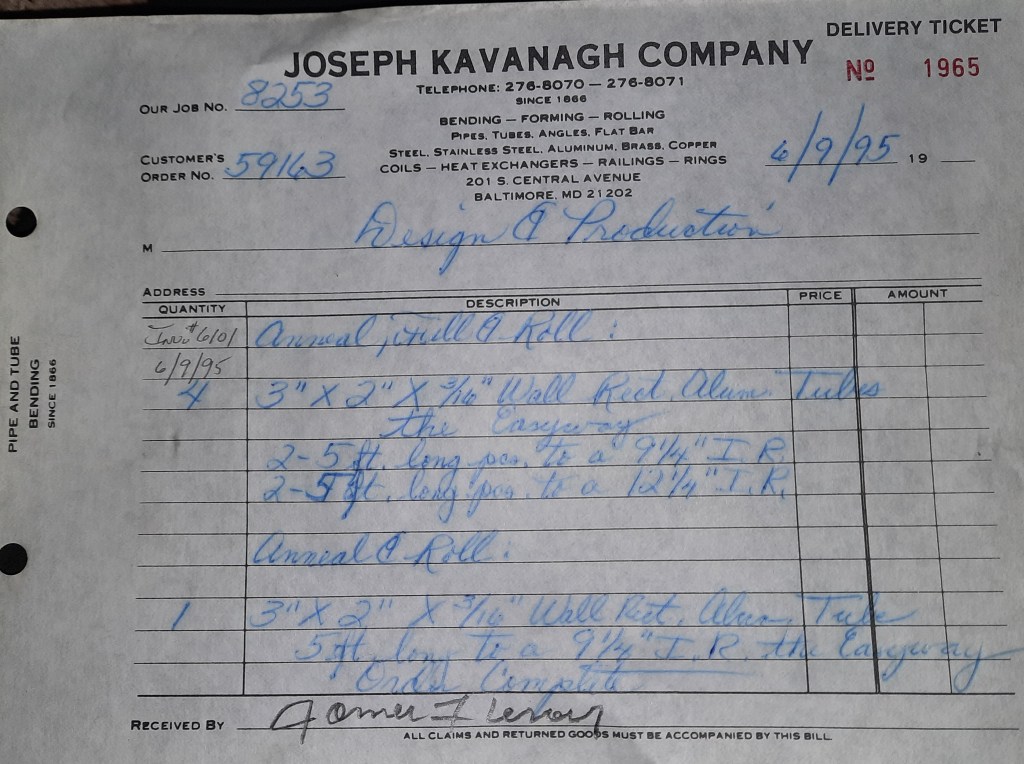 DELIVERY TICKET
JOSEPH KAVANAGH COMPANY
Nº 1965
TELEPHONE: 276-8070 — 276-8071
SINCE 1866
OUR JOB NO. 8253
BENDING — FORMING — ROLLING
PIPES, TUBES, ANGLES, FLAT BAR
STEEL, STAINLESS STEEL, ALUMINUM, BRASS, COPPER
CUSTOMER'S
ORDER NO. 59163
COILS — HEAT EXCHANGERS — RAILINGS — RINGS
6/9/95 19
201 S. CENTRAL AVENUE
BALTIMORE, MD 21202
M Design & Production
ADDRESS
QUANTITY DESCRIPTION PRICE AMOUNT
Inv. #6101 Anneal, Fill & Roll:
6/9/95
4 3" X 2" X 3/16" Wall Rect. Alum. Tubes
the Easyway
2-5 ft. long pcs. to a 9 1/4" I.R.
2-5 ft. long pcs. to a 12 1/4" I.R.
Anneal & Roll:
1 3" X 2" X 3/16" Wall Rect. Alum. Tube
5 ft. long to a 9 1/4" I.R. the Easyway
Order Complete
RECEIVED BY
ALL CLAIMS AND RETURNED GOODS MUST BE ACCOMPANIED BY THIS BILL.
PIPE AND TUBE
BENDING
SINCE 1866